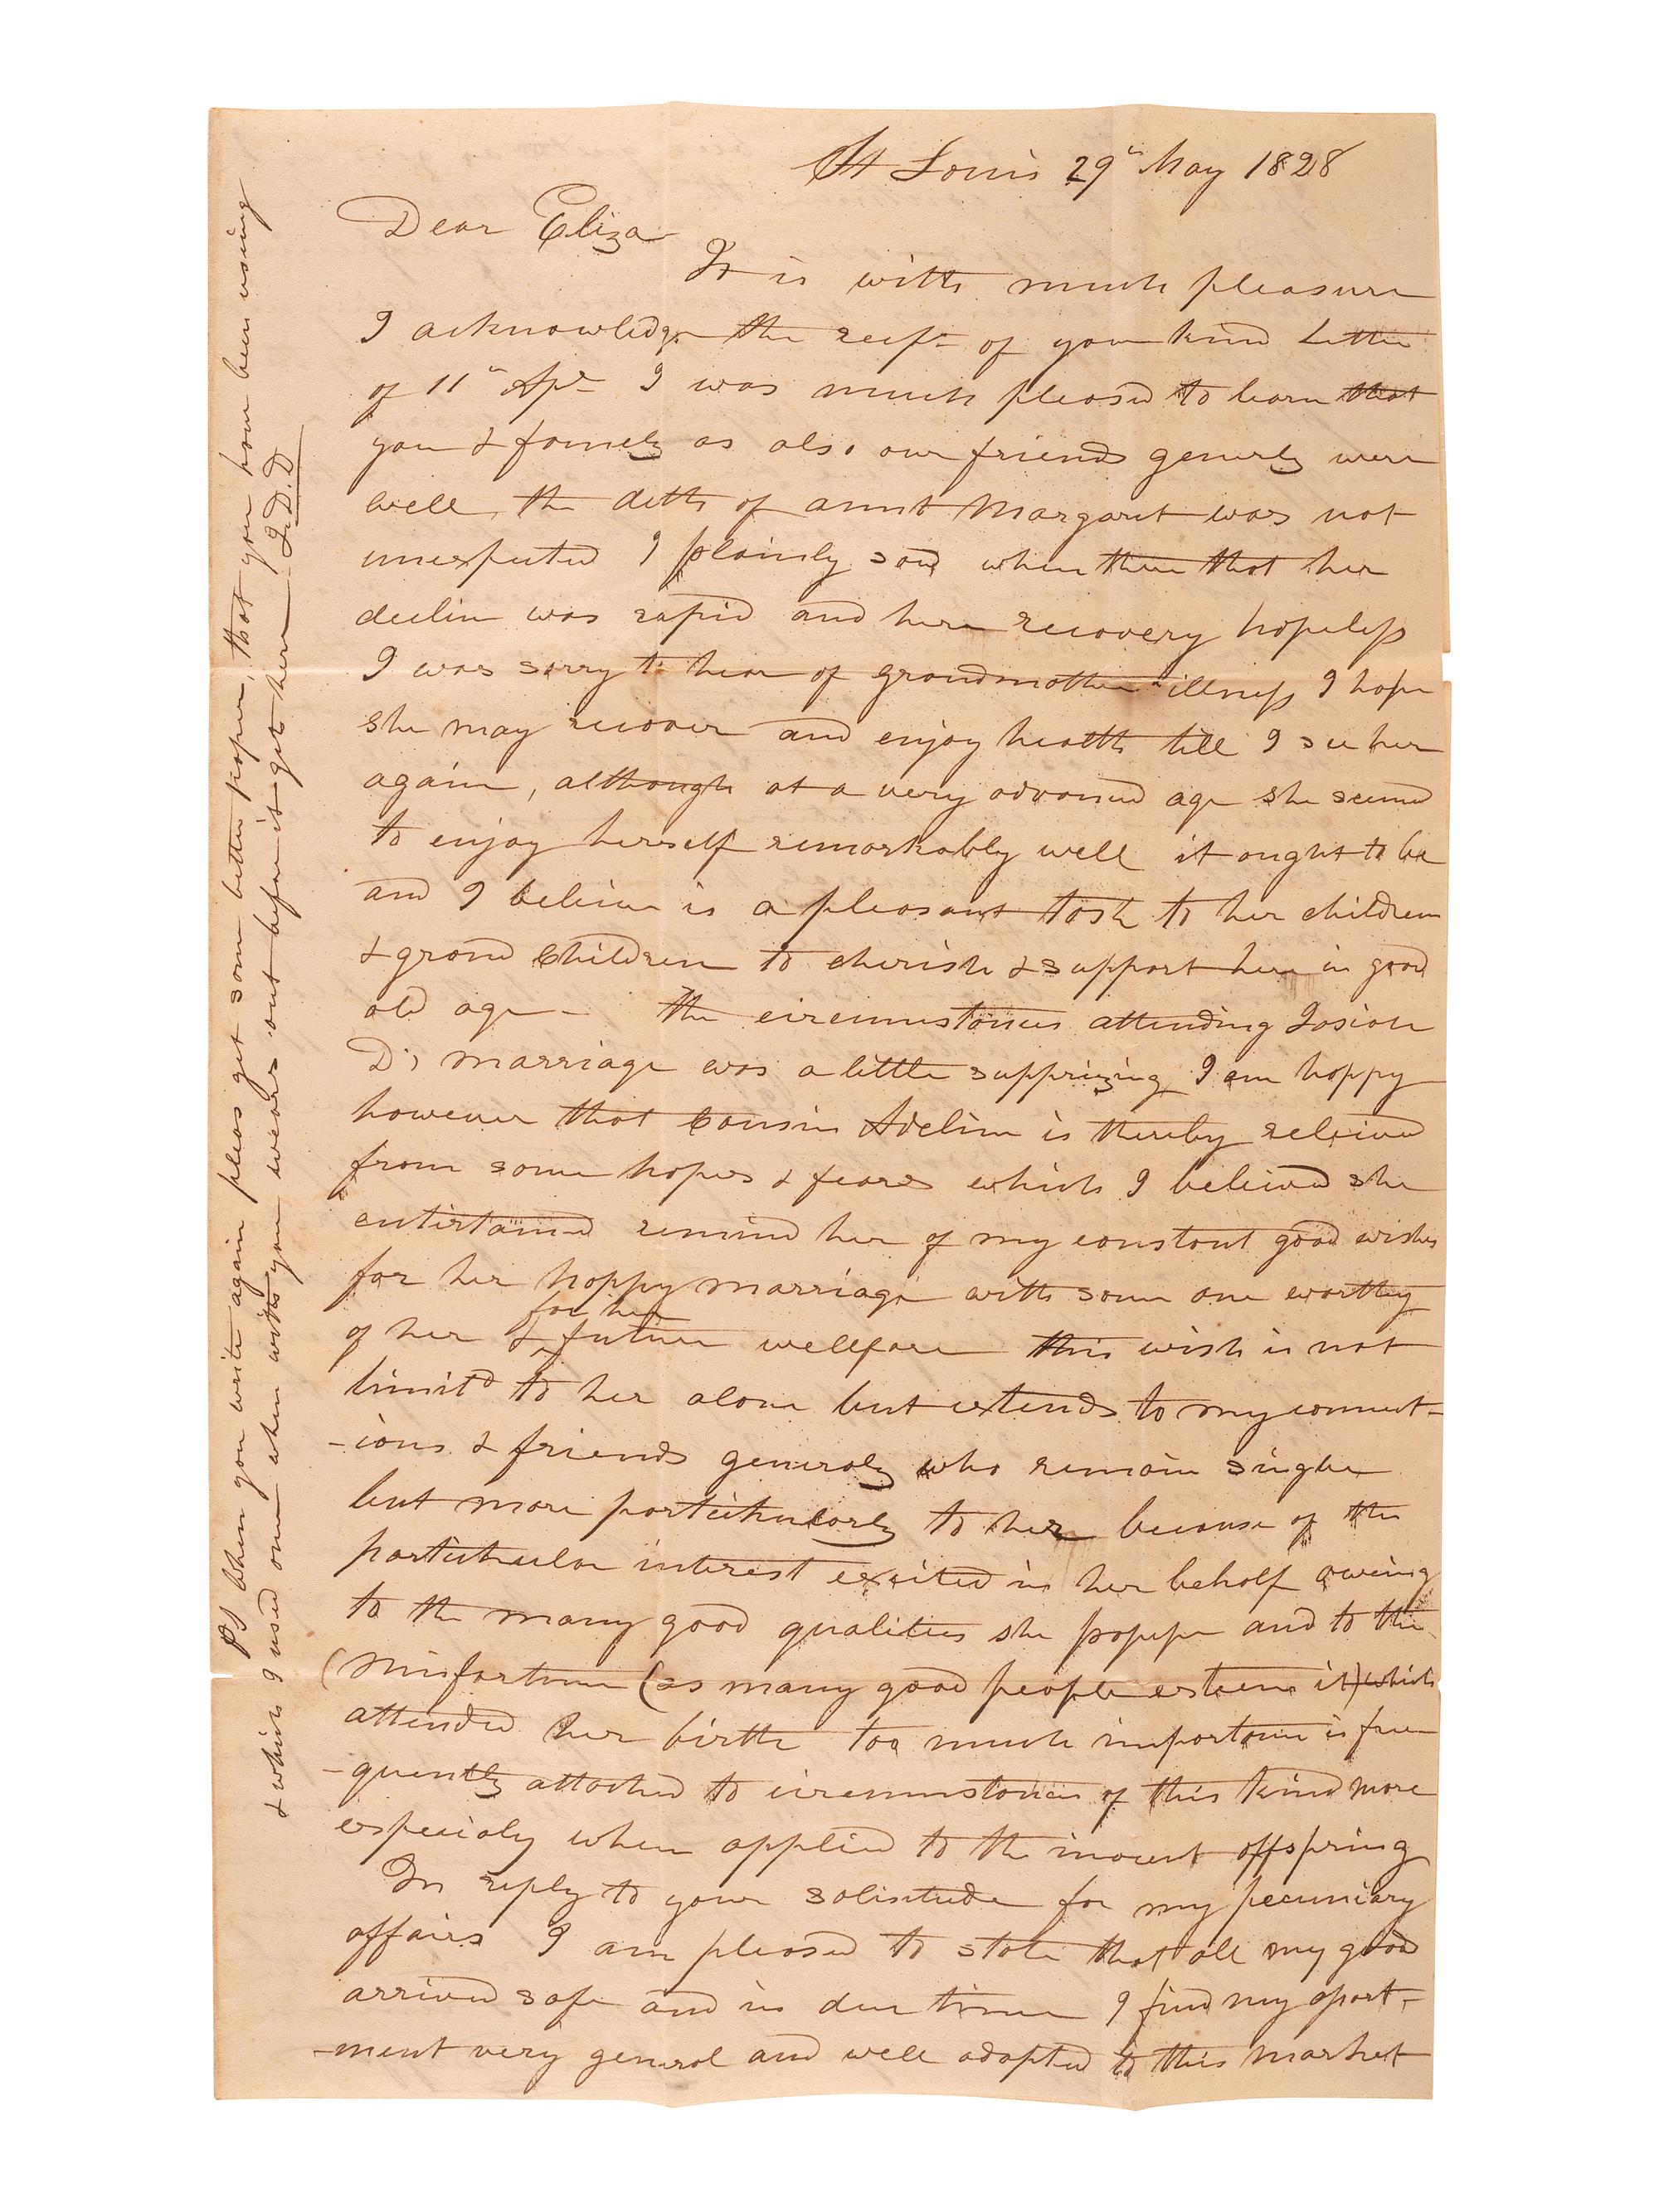 St Louis 29th May 1828
Dear Eliza
It is with much pleasure
I acknowledge the recpt of your kind Letter
of 11th Apr I was much pleased to learn that
you & famely as also our friends generly were
well, the deth of aunt Margaret was not
unexpected I plainly saw when there that her
declin was rapid and here recovery hopeless
I was sorry to hear of grandmothers illness I hope
she may recover and enjoy health till I see her
again, although at a very advanced age she seemed
to enjoy herself remarkably well it ought to be
and I believe is a pleasant task to her children
& grand Children to cherish & support her in good
old age - the circumstances attending Josiah
D's marriage was a little supprizing I am happy
however that Cousin Adeline is thereby releived
from some hopes & fears which I beleived she
entertained remind her of my constant good wishes
for her happy marriage with some one worthy
of her & for her future wellfare this wish is not
limitd to her alone but extends to my connect-
-ions & friends generaly who remain single
but more particularly to her because of the
particular interest excited in her behalf owing
to the many good qualities she possess and to the
(misfortune (as many good people esteem it) which
attended her birth too much importance is fre
-quently attached to circumstances of this kind more
especialy when applied to the inocent offspring
In reply to your solicitude for my pecuniary
affairs I am pleased to state that all my goods
arrived safe and in due time I find my asort-
-ment very general and well adapted to this market
PS When you write again pleas get some better paper, that you have been using
& which I used one when with you wears out before it gets here J.D.D